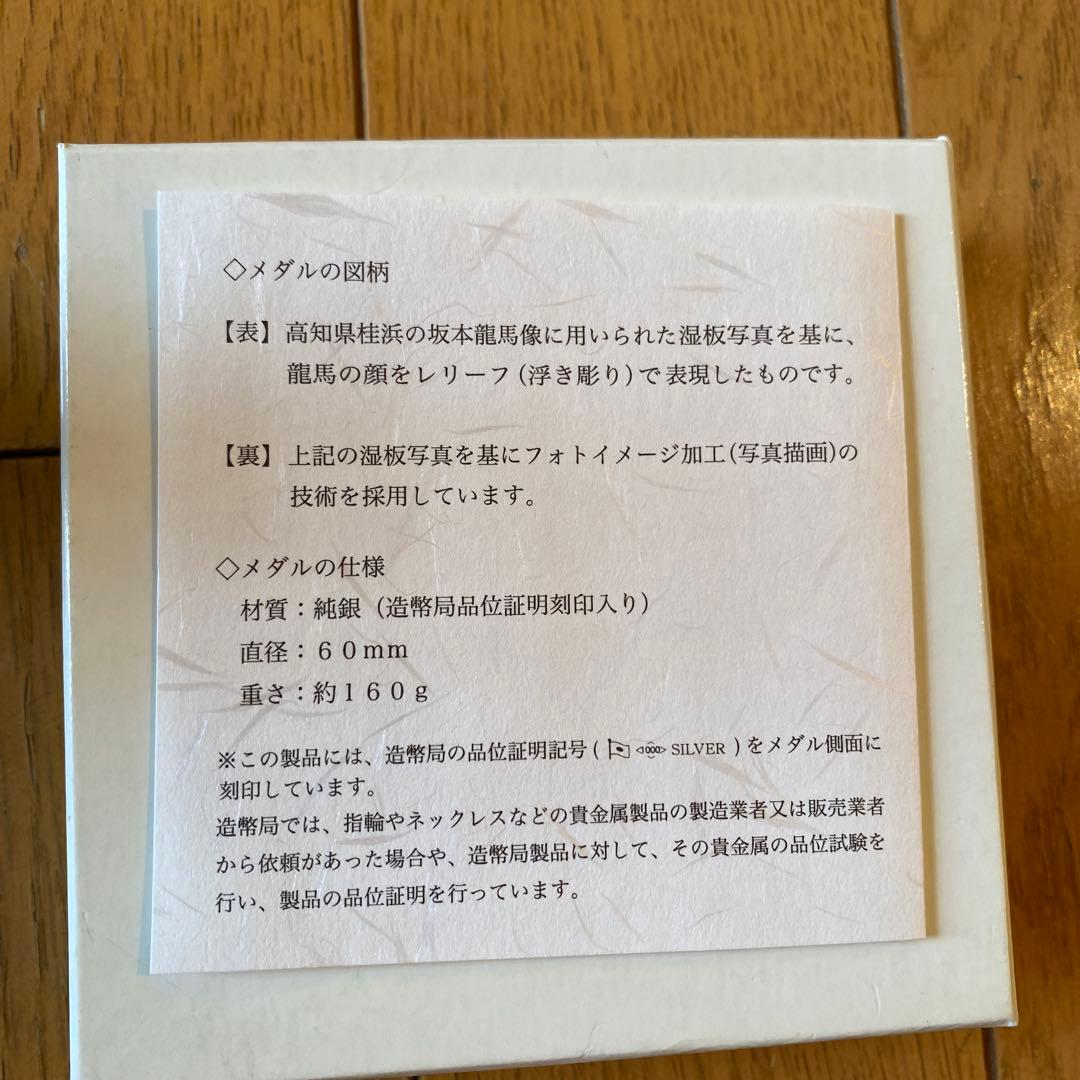 ◇メダルの図柄
【表】高知県桂浜の坂本龍馬像に用いられた湿板写真を基に、
龍馬の顔をレリーフ(浮き彫り)で表現したものです。
【裏】上記の湿板写真を基にフォトイメージ加工(写真描画)の
技術を採用しています。
◇メダルの仕様
材質：純銀（造幣局品位証明刻印入り）
直径：６０ｍｍ
重さ：約１６０ｇ
※この製品には、造幣局の品位証明記号( 1000 SILVER )をメダル側面に
刻印しています。
造幣局では、指輪やネックレスなどの貴金属製品の製造業者又は販売業者
から依頼があった場合や、造幣局製品に対して、その貴金属の品位試験を
行い、製品の品位証明を行っています。